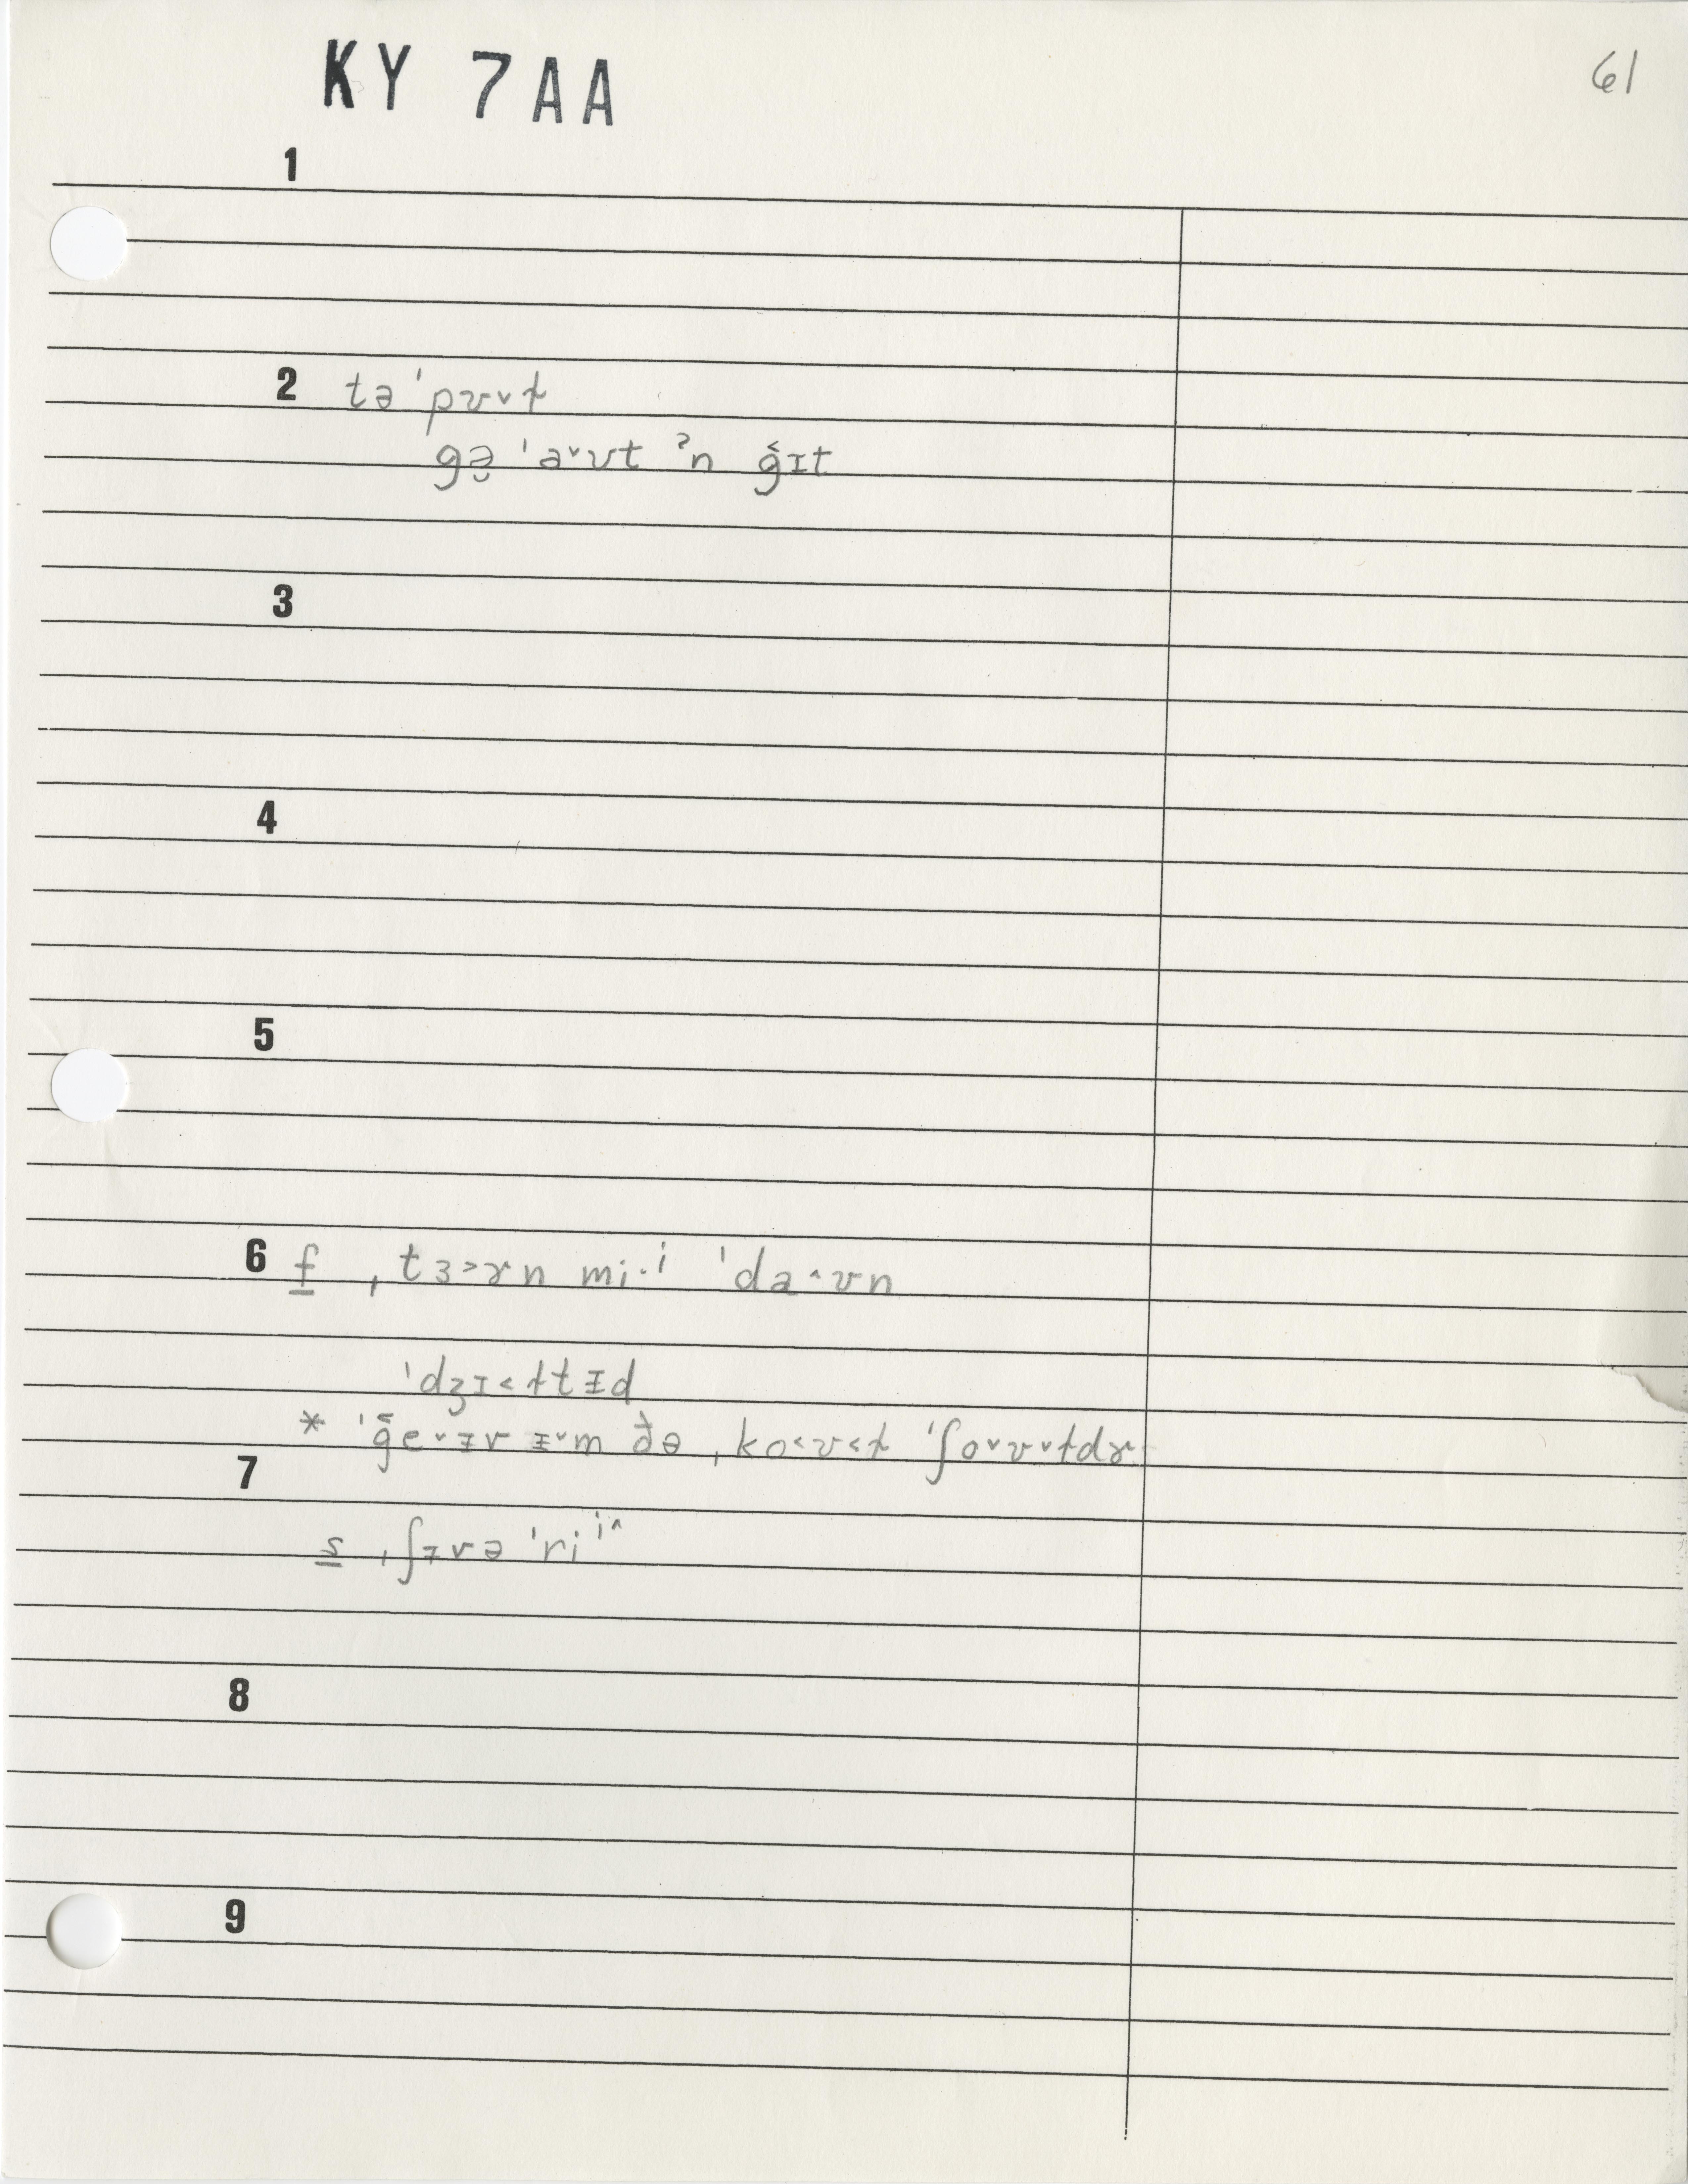 KY 7AA
61
1
2 tə ˈpʊ˅ɫ
gə̯ ˈa˅ʊt ˀn g̑ɪt
3
4
5
6 f̲ ˌtɜ˃ɤn mi·ⁱ ˈda˄ʊn
ˈdʒɪ˂ɫtᵻd
* ˈg̑e˅ᵻv ᵻ˅m ðə ˌko˂ʊ˂ɫ ˈʃo˅ʊ˅ɫdɤ
7
s̲ ˌʃᵻvə ˈriⁱ˄
8
9